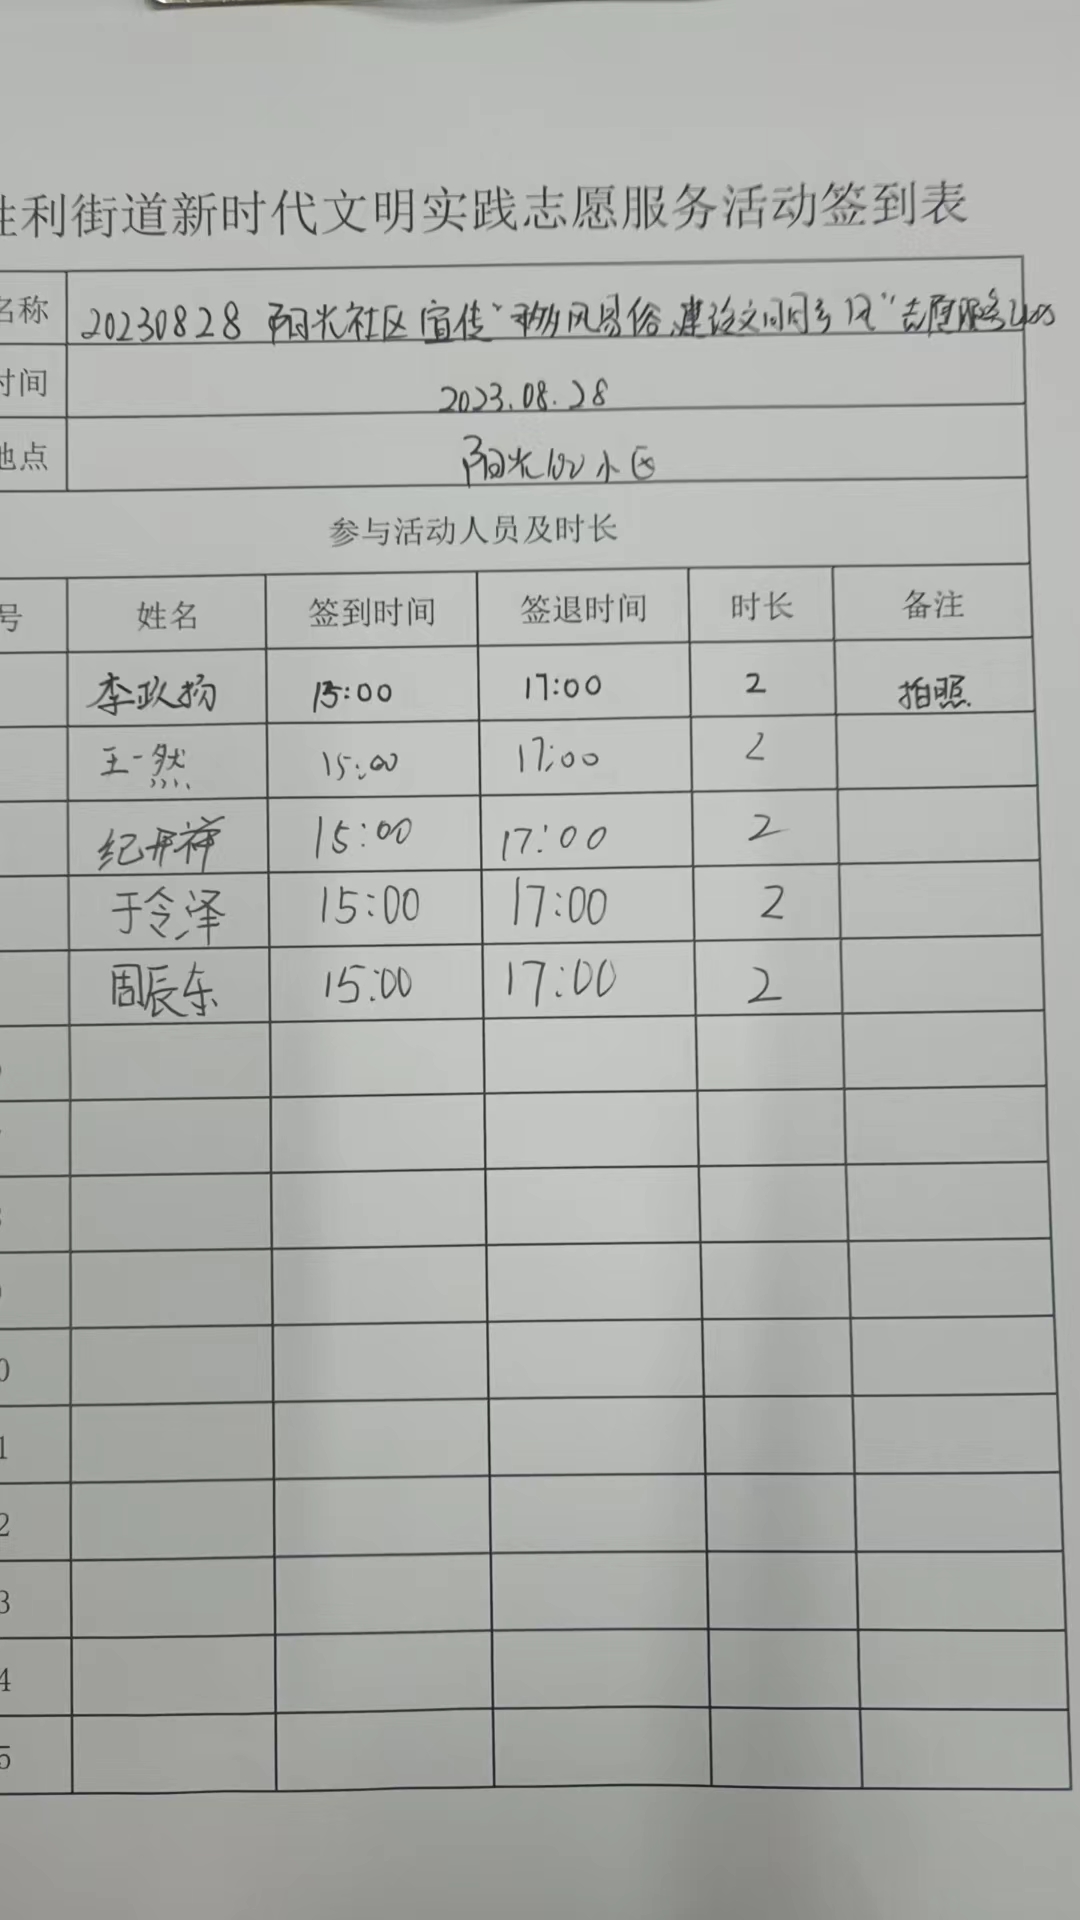 胜利街道新时代文明实践志愿服务活动签到表
名称 20230828 阳光社区宣传"移风易俗、建设文明乡风"志愿服务
时间 2023.08.28
地点 阳光100小区
参与活动人员及时长
号 姓名 签到时间 签退时间 时长 备注
李政扬 15:00 17:00 2 拍照
王一然 15:00 17:00 2
纪开祥 15:00 17:00 2
于令泽 15:00 17:00 2
周辰东 15:00 17:00 2
0
1
2
3
4
5